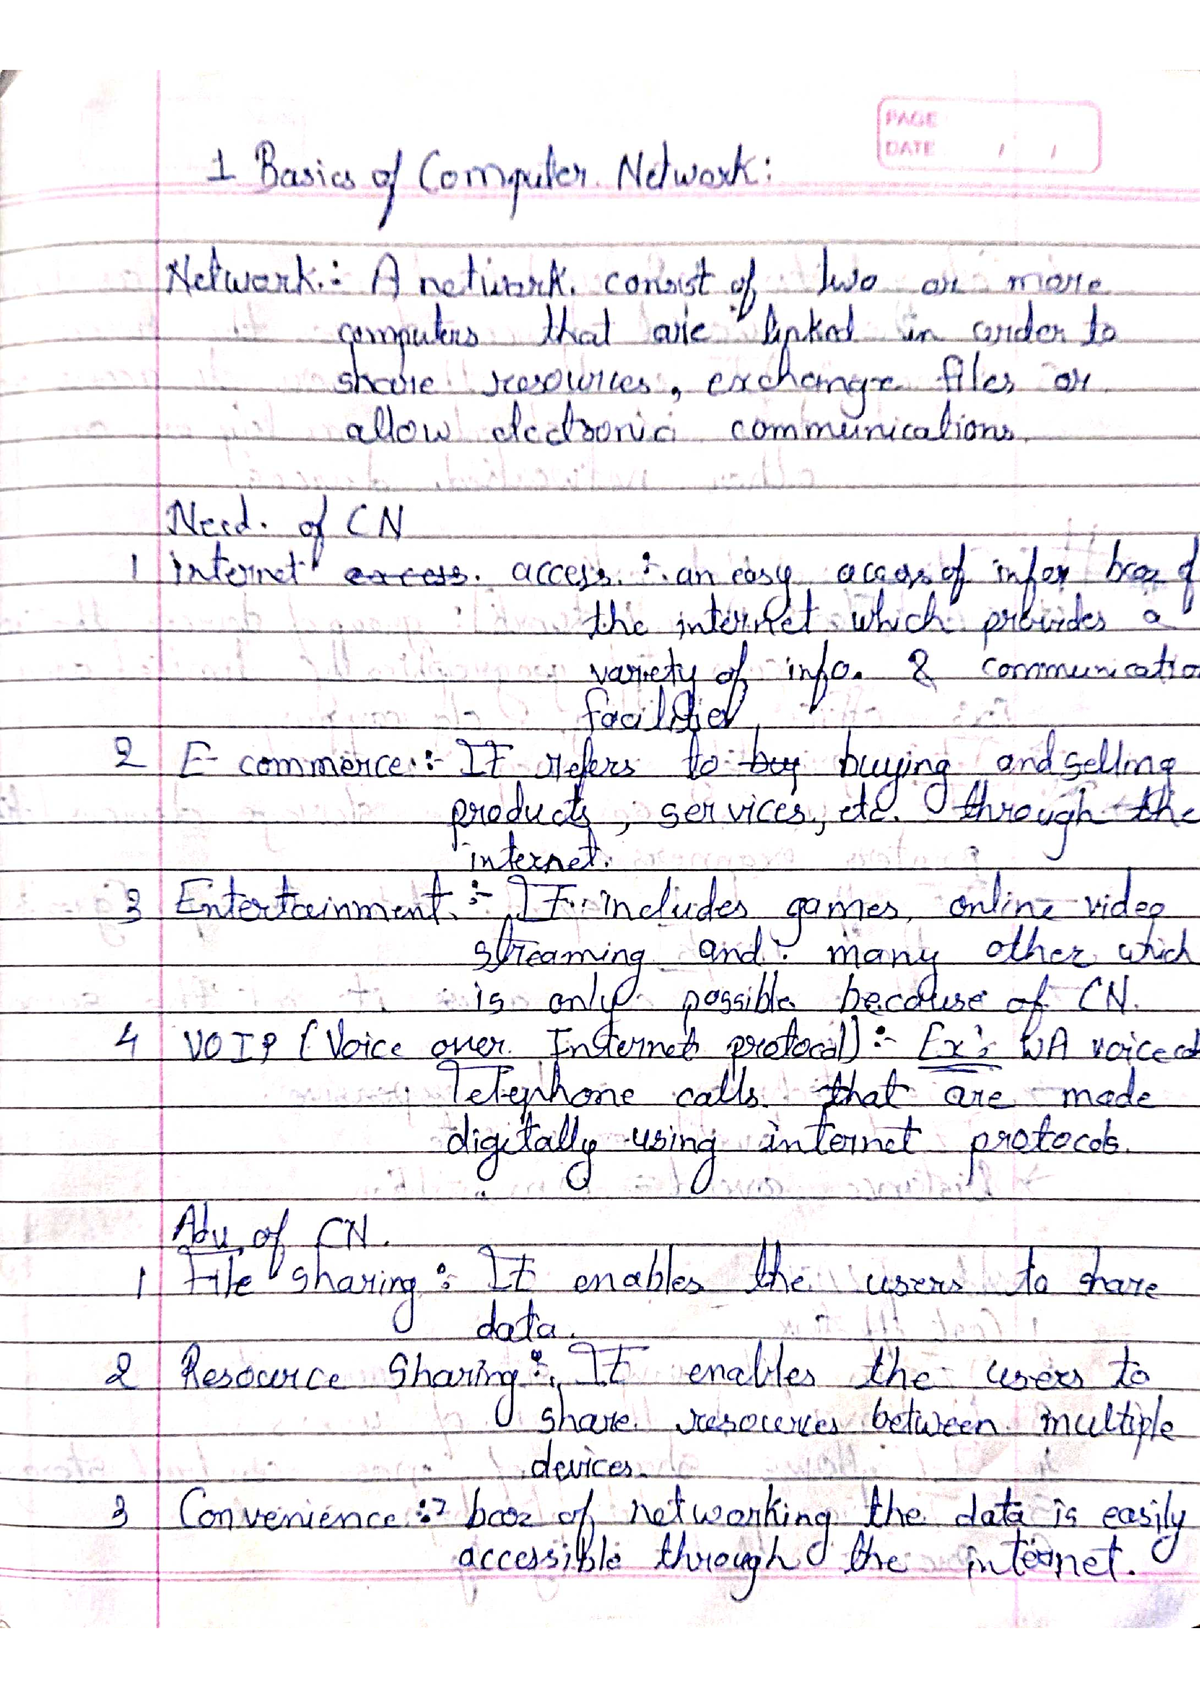 PAGE
DATE / /
1 Basics of Computer Network:
Network :- A network consist of two or more
computers that are linked in order to
share resources, exchange files or
allow electronic communications.
Need of CN
1 internet excess access :- an easy access of infor bcoz of
the internet which provides a
variety of info. & communication
facilities
2 E-commerce :- It refers to buy buying and selling
products, services, etc. through the
internet.
3 Entertainment :- It includes games, online video
streaming and many other which
is only possible because of CN.
4 VOIP (Voice over Internet protocol) :- Ex: WA voice
Telephone calls that are made
digitally using internet protocols.
Adv of CN.
1 File sharing : It enables the users to share
data.
2 Resource Sharing :- It enables the users to
share resources between multiple
devices.
3 Convenience :- bcoz of networking the data is easily
accessible through the internet.